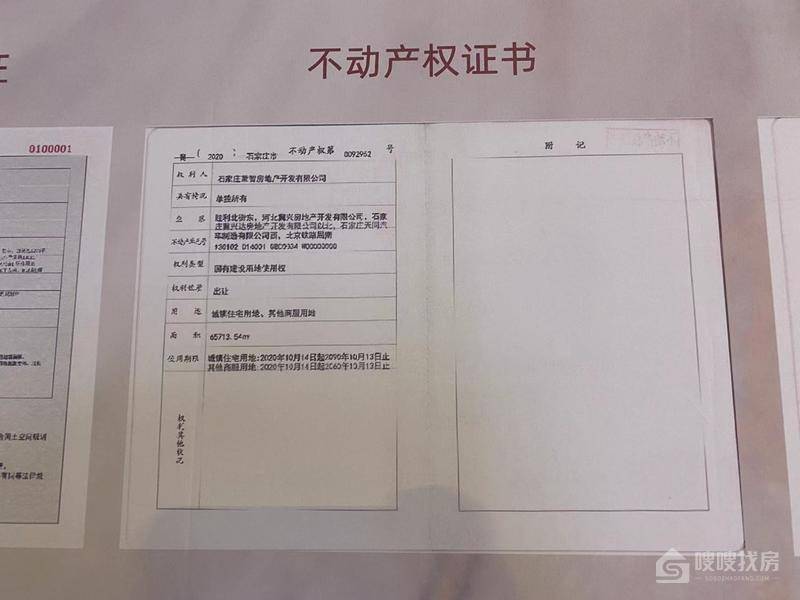 不动产权证书
0100001
冀 ( 2020 ) 石家庄市 不动产权第 0092962 号
权利人 石家庄萧智房地产开发有限公司
共有情况 单独所有
坐落 胜利北街东，河北冀兴房地产开发有限公司，石家
庄冀兴达房地产开发有限公司以北，石家庄天同汽
车制造有限公司西，北京铁路局南
不动产单元号 130102 014001 GB00034 W00000000
权利类型 国有建设用地使用权
权利性质 出让
用途 城镇住宅用地、其他商服用地
面积 65713.54㎡
使用期限 城镇住宅用地:2020年10月14日起2090年10月13日止
其他商服用地:2020年10月14日起2060年10月13日止
权利其他状况
附记
嗖嗖找房
SOSOZHAOFANG.COM